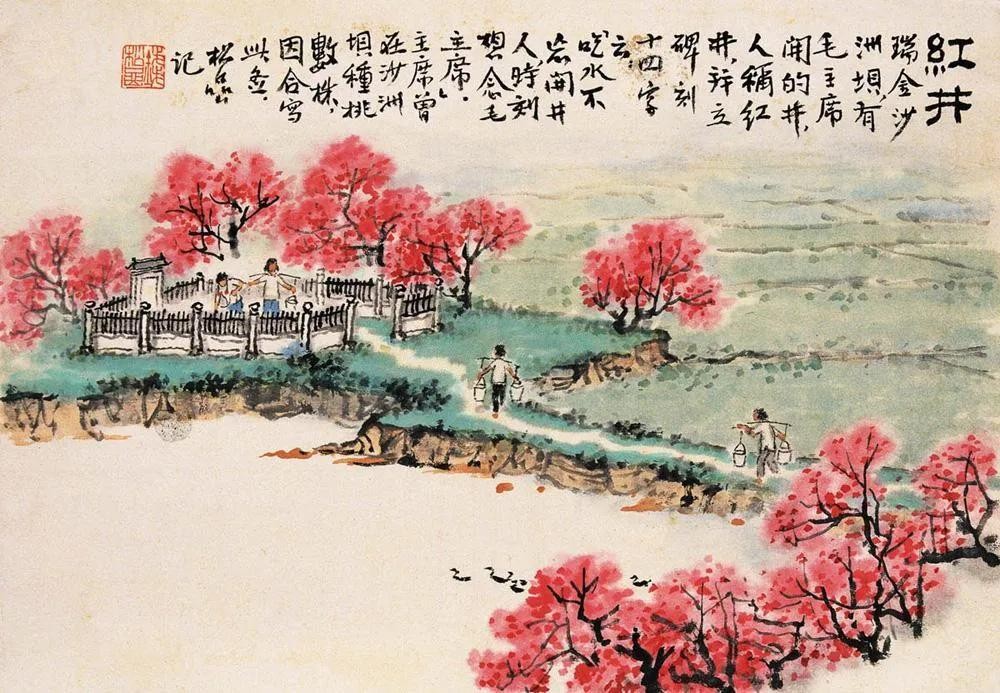 紅井
瑞金沙
洲垻,有
毛主席
開的井,
人稱紅
井,并立
碑刻
十四字
云
吃水不
忘開井
人,時刻
想念毛
主席。
主席曾
在沙洲
垻種桃
數株,
因合寫
此意。
松嵒
記